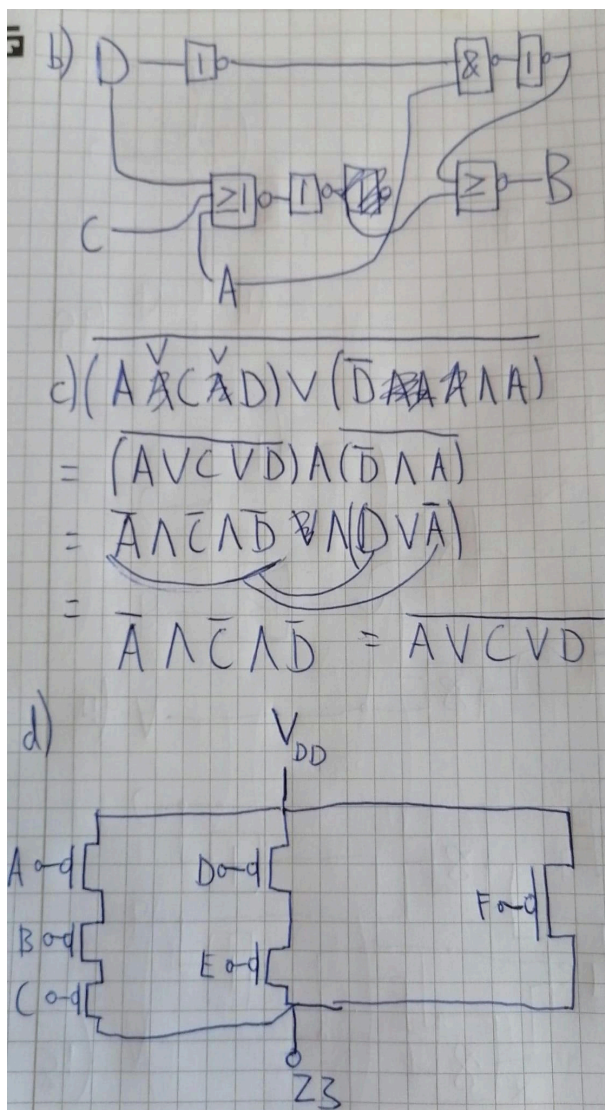 b) D 1 & 1
≥1 1 ≥ B
C
A
c) $\overline{(A \lor C \lor D) \lor (\overline{D} \land A)}$
= $(\overline{A \lor C \lor D}) \land (\overline{\overline{D} \land A})$
= $\overline{A} \land \overline{C} \land \overline{D} \land (D \lor \overline{A})$
= $\overline{A} \land \overline{C} \land \overline{D} = \overline{A \lor C \lor D}$
d)
V_DD
A D
F
B E
C
Z3